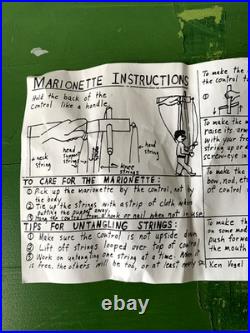 MARIONETTE INSTRUCTIONS
Hold the back of the
control like a handle.
neck
string
head
support
string
hand
string
Knee
strings
TO CARE FOR THE MARIONETTE:
① Pick up the marionette by the control, not by
the body.
② Tie up the strings with a strip of cloth when
putting the puppet away.
③ Hang the control from a hook or nail when not in use.
TIPS FOR UNTANGLING STRINGS:
① Make sure the control is not upside down
② Lift off strings looped over top of control.
③ Work on untangling one string at a time. When it
is free, the others will be too, or at least nearly so.
To make the
in this
To make the m
raise its arm
with your free
string or a
screw-eye in
To make the
bow, nod, et
of control
To make the
on some mod
push forward
the mouth
Ken Vogel